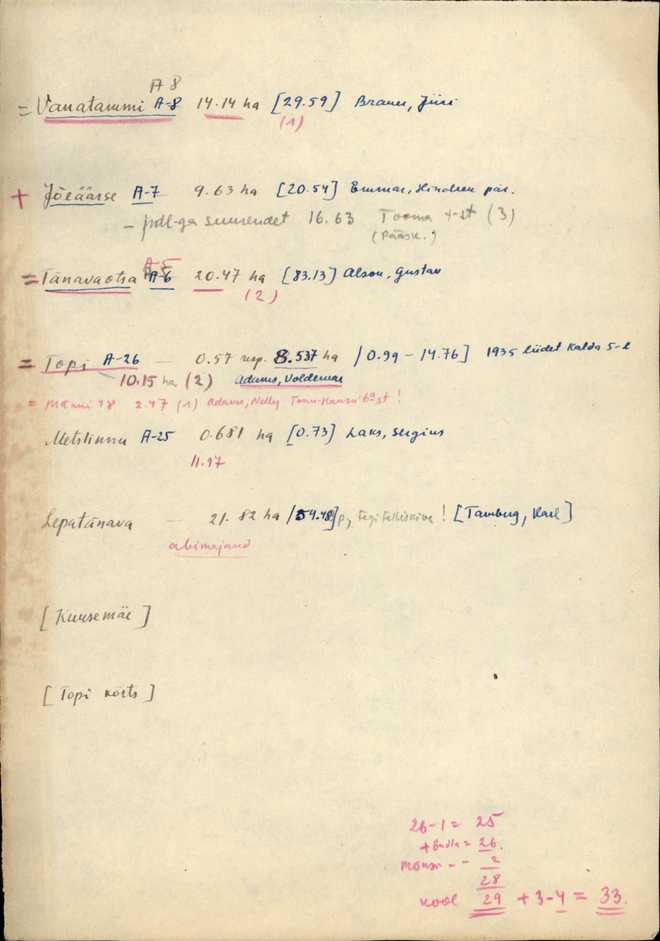 A8
= Vanatammi A-8 14.14 ha [29.59] Braues, Jüri
(1)
+ Jõeäärse A-7 9.63 ha [20.54] Emmar, Hindrek pär.
– põll-ga suurendet 16.63 Tooma 4-st (3)
(pääsk.)
A-5
= Tänavaotsa A-6 20.47 ha [83.13] Alson, Gustav
(2)
= Topi A-26 — 0.57 resp. 8.537 ha [0.99 – 14.76] 1935 liidet Kalda 5-l
10.15 ha (2) Adams, Voldemar
2.47 (1) Adams, Nelly
Metslinnu A-25 0.681 ha [0.73] Laks, Sergius
11.97
Lepatänava — 21.82 ha [54.48] ! [Tamburg, Karl]
abimajand
[Kuusemäe]
[Topi kõrts]
26-1 = 25
= 26.
2
28
kool 29 + 3-4 = 33.